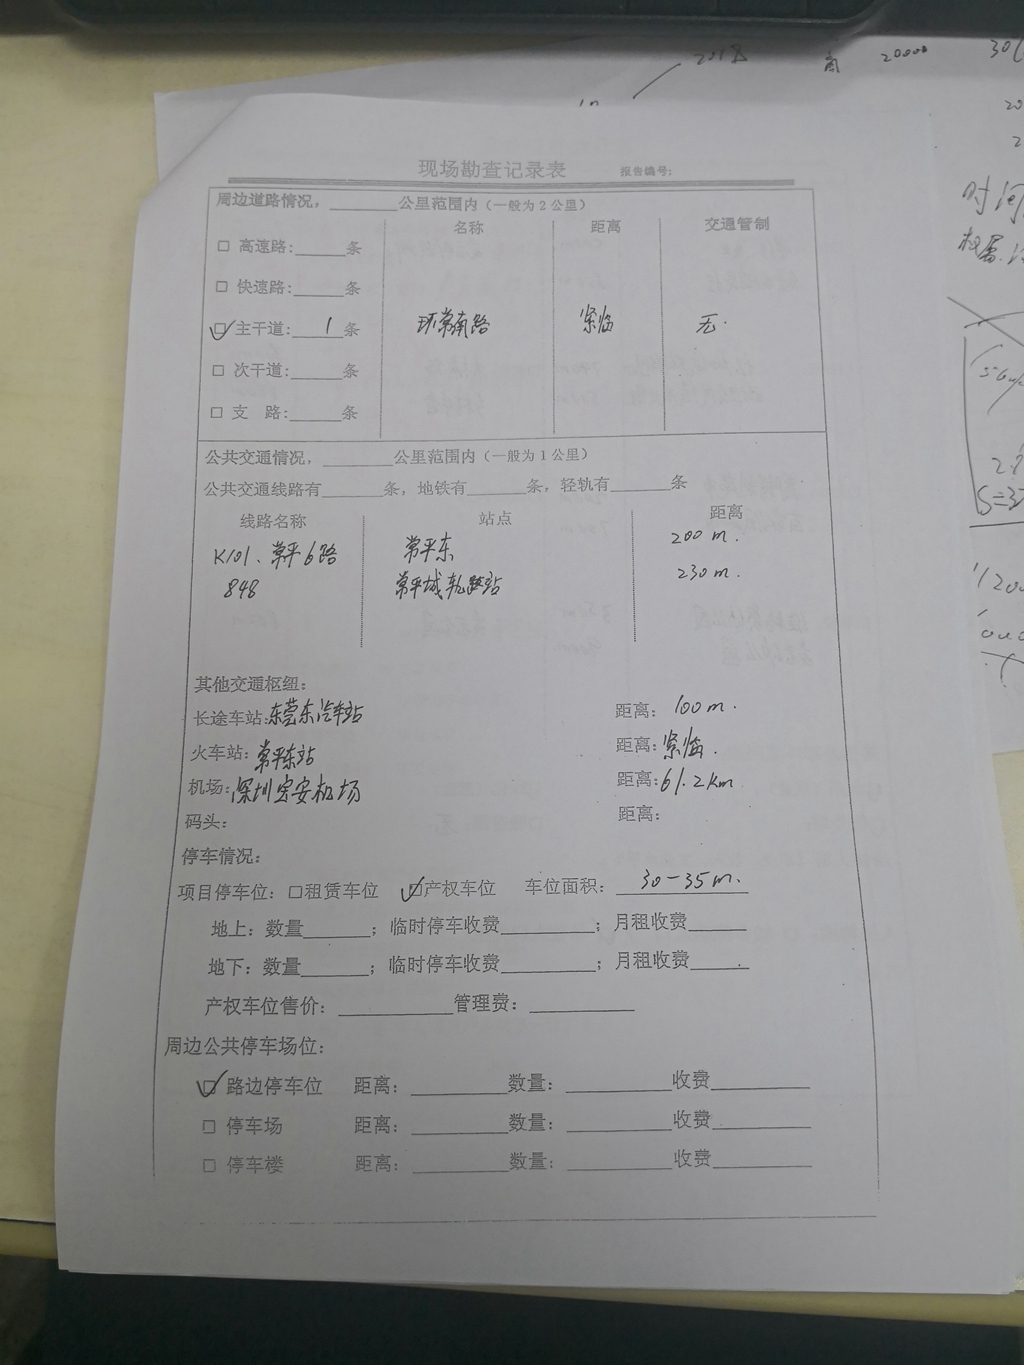 2018 高 20000
现场勘查记录表 报告编号:
周边道路情况，________公里范围内（一般为2公里）
名称 距离 交通管制
□ 高速路:______条
□ 快速路:______条
☑ 主干道: 1 条 环常南路 紧临 无.
□ 次干道:______条
□ 支 路:______条
公共交通情况，________公里范围内（一般为1公里）
公共交通线路有_______条，地铁有_______条，轻轨有_______条
线路名称 站点 距离
K101、常平6路 常平东 200 m.
848 常平城轨路站 230 m.
其他交通枢纽:
长途车站:东莞东汽车站 距离: 100 m.
火车站:常平东站 距离:紧临.
机场:深圳宝安机场 距离:61.2km
码头: 距离:
停车情况:
项目停车位: □租赁车位 ☑产权车位 车位面积: 30-35m.
地上: 数量_______; 临时停车收费__________; 月租收费______
地下: 数量_______; 临时停车收费__________; 月租收费______
产权车位售价: ____________管理费: ___________
周边公共停车场位:
☑ 路边停车位 距离: __________数量: ___________收费__________
□ 停车场 距离: __________数量: ___________收费__________
□ 停车楼 距离: __________数量: ___________收费__________